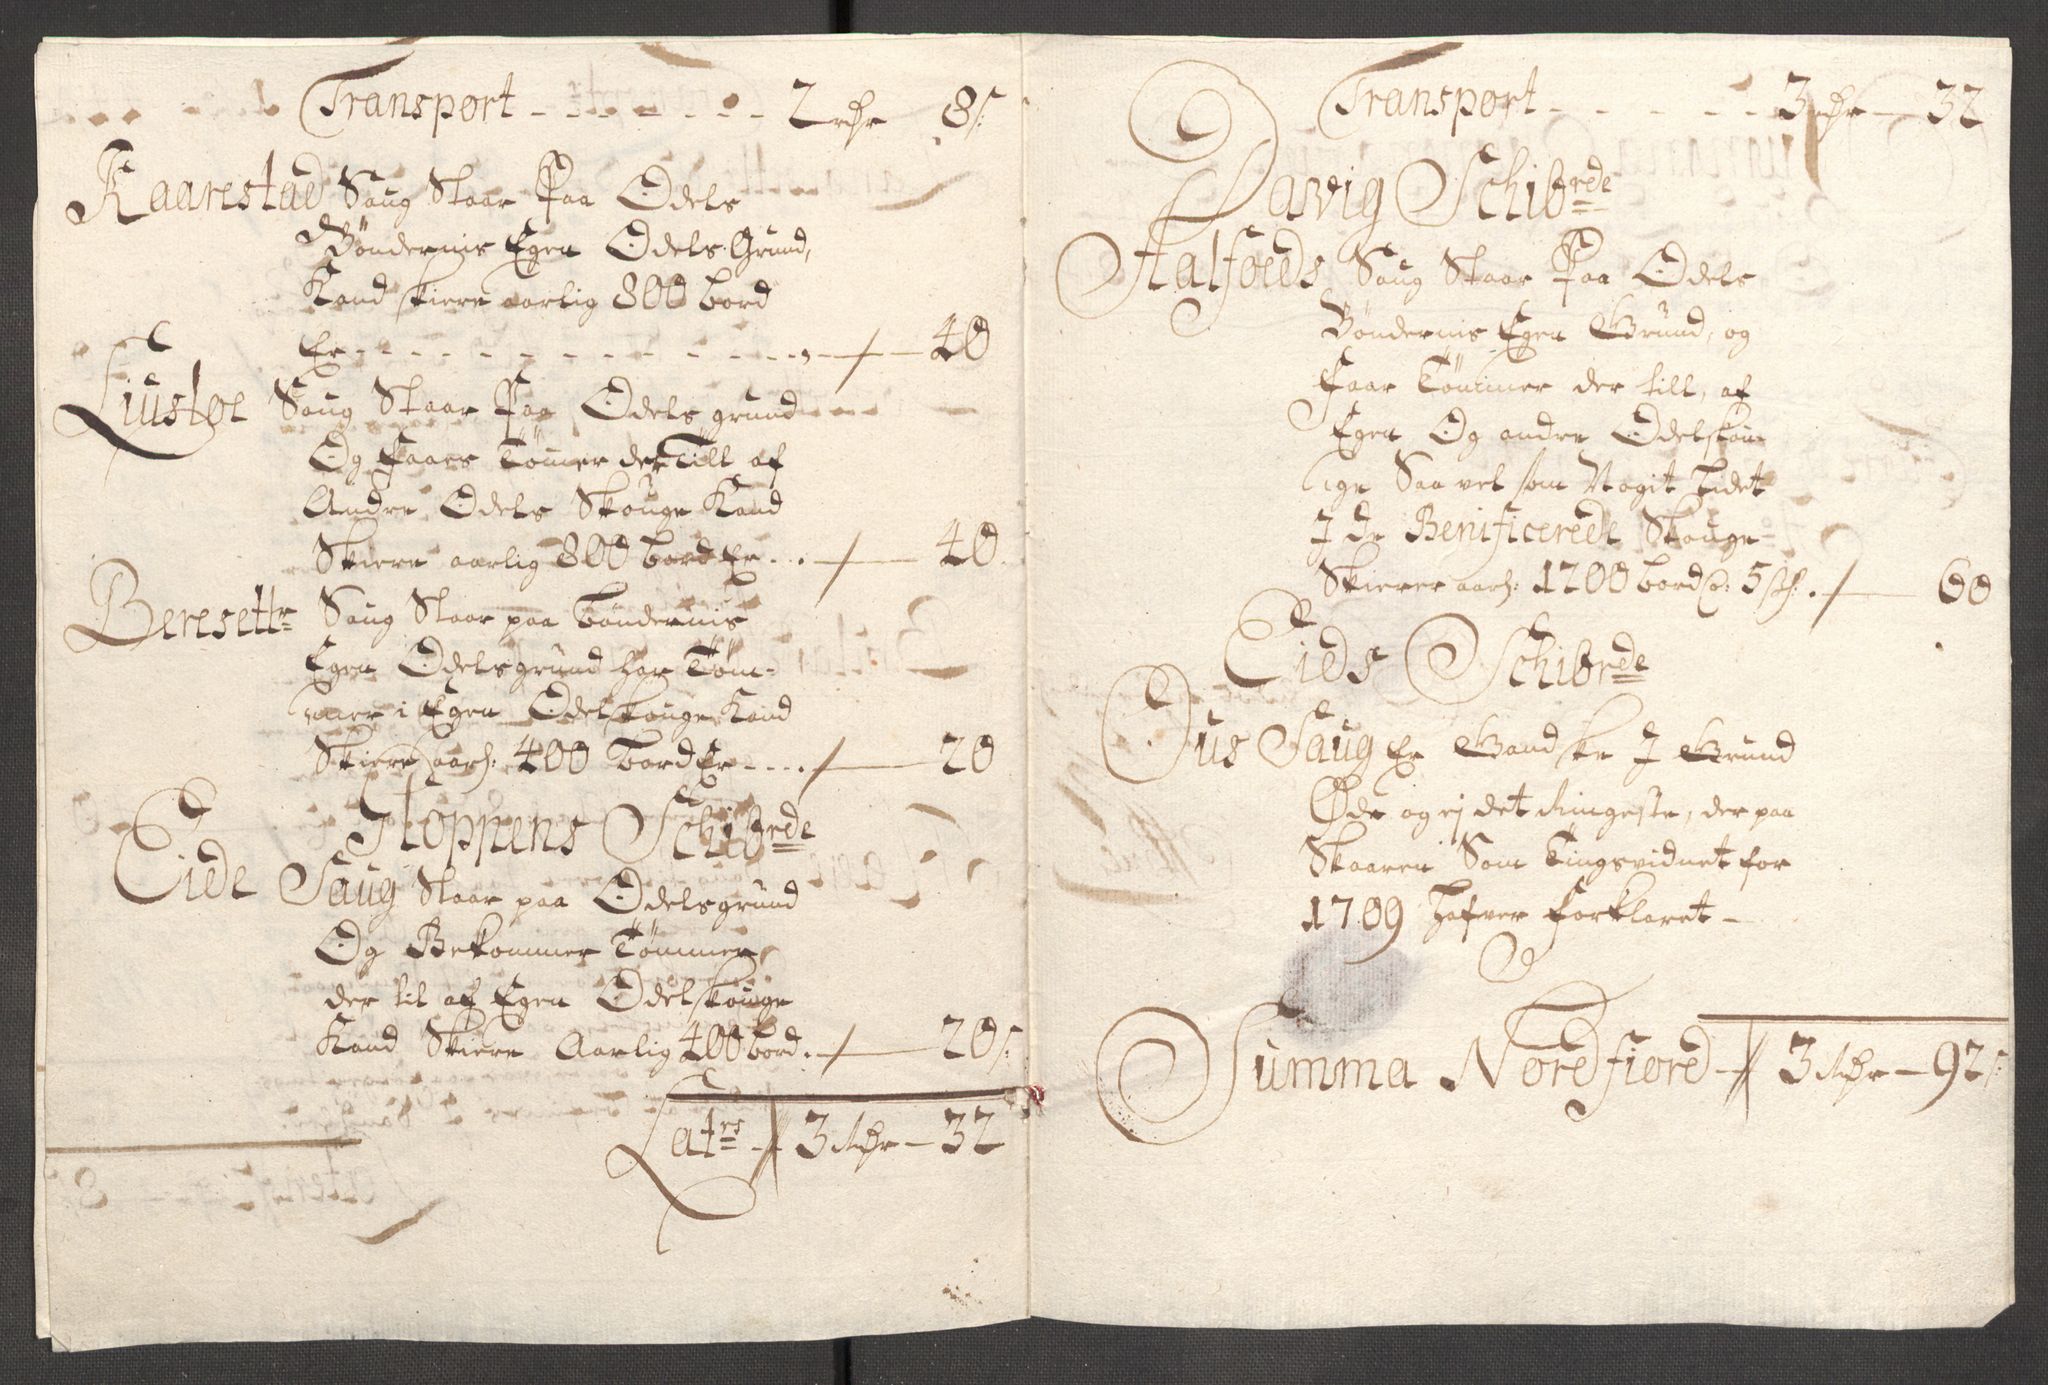 Transport - - - - - - - 2 rdr 8 s:
Kaarestad Saug Staar Paa Odels
Bøndernis Egen Odels Grund,
Kand skiere aarlig 800 bord
Er - - - - - - - - - - - / — 40
Liustøe Saug Staar Paa Odels grund
Og faaes Tømer der Till af
Andre Odels Skouge Kand
Skiere aarlig 800 bord Er . . . / — 40
Beresettr Saug Staar paa bøndernis
Egen Odelsgrund har Tøm-
mer i Egen Odelskouge Kand
Skiere aarl: 400 bord Er - . . . / — 20
Hoppens Schibrde
Eide Saug Staar paa Odelsgrund
Og Bekommer Tømmer
der til af Egen Odelskouge
Kand Skiere Aarlig 400 bord . / — 20 s:
Latrs - // 3 Rdr — 32
Transport - - - - - - 3 rdr — 32
Davig Schibrde
Aalfoeds Saug Staar Paa Odels
Bøndernis Egen Grund, og
Faar Tømmer der till, af
Egen Og andre Odelskou-
ge Saa vel som Nogit lidet
I de Benificerede Skouge
Skierer aarl: 1200 bord a: 5 s . / — 60
Eids Schibrde
Ous Saug Er Gandske I Grund
Øde og ej det Ringeste, der paa
Skaaren Som Tingsvidnet for
1709 hafver forklaret -
Summa Noredfiored - // 3 Rdr — 92 s: